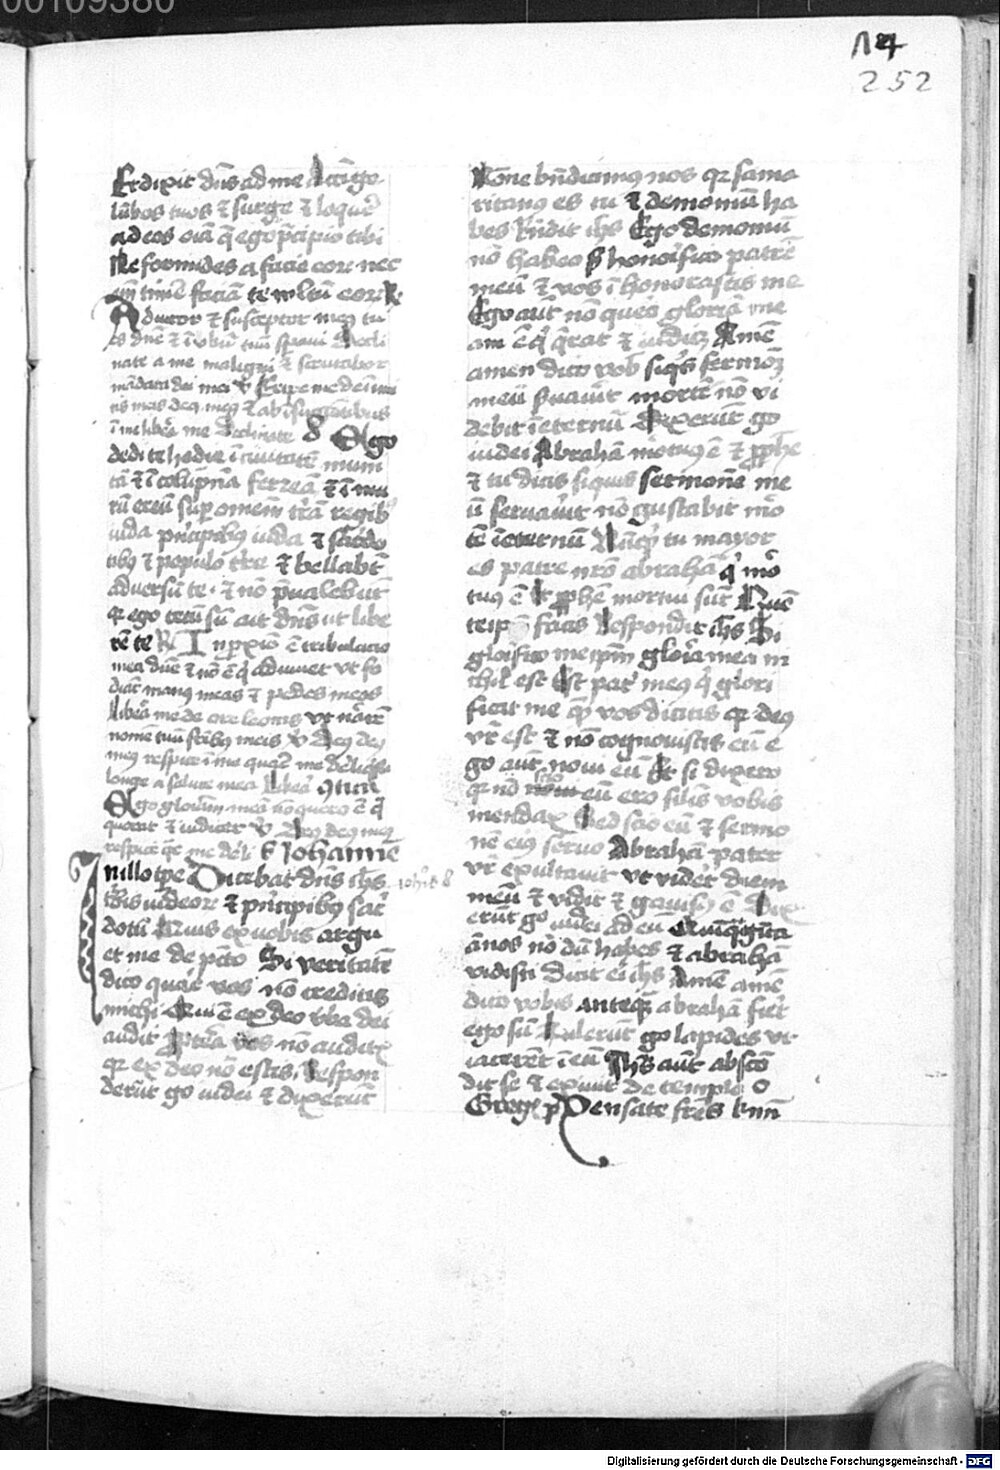 00109380
252
Et dixit dn̄s ad me Accīge
lūbos tuos ⁊ surge ⁊ loquer̄
ad eos oīa q̄ ego p̄cipio tibi
Ne formides a facie eorꝫ nec
em̄ timere faciā te vultū eorꝫ R
Adiutor ⁊ susceptor meꝰ tu
es dn̄e ⁊ ī v̄bū tuū spaui Decli
nate a me maligni ⁊ scrutabor
mādata dei mei v̄ Eripe me de īimi
cis meis deꝰ meꝰ ⁊ ab īsurgētibus
ī me libera me Declinate Ego
dedi te hodie ī ciuitatē muni
tā ⁊ ī colūpnā ferreā ⁊ ī mu
rū ereū suꝑ omem̄ trā regibꝰ
iuda pn̄cipibꝰ iuda ⁊ sac̄do
tibꝰ ⁊ populo tr̄e ⁊ bellabūt
aduersū te ⁊ nō p̄ualebūt
qꝛ ego tecū sū ait dn̄s ut libe
rē te R In ꝓxiō ē tribulacio
mea dn̄e ⁊ nō ē q̄ adiuuet vt fo
diāt manꝰ meas ⁊ pedes meos
libera me de ore leonis vt narrē
nomē tuū fr̄ibꝰ meis v̄ Deꝰ deꝰ
meꝰ respice ī me quare me dereliq̄sti
longe a salute mea
Ego gloriam meā nō quero ē q̄
querat ⁊ iudicet v̄ Deꝰ deꝰ meꝰ
respice me Johannē
In illo tp̄e Dicebat dn̄s ih̄s
Joh̄is 8
t̄bis iudeorꝫ ⁊ pn̄cipibꝰ sac̄
dotū Quis ex vobis argu
et me de pctō Si veritatē
dico quare vos nō creditis
michi Qui ē ex deo v̄ba dei
audit Ptēa vos nō auditis
qꝛ ex deo nō estis Respon
derūt go iudei ⁊ dixerūt
Nōne bn̄dicimꝰ nos qꝛ sama
ritanꝰ es tu ⁊ demoniū ha
bes Rn̄dit ih̄s Ego demoniū
nō habeo s̄ honorifico patrē
meū ⁊ vos īhonorastis me
Ego aūt nō quero gloriā me
am ē q̄ q̄rat ⁊ iudicꝫ Amē
amen dico vob̄ siq̄s sermoꝫ
meū s̄uauit mortē nō vi
debit ī eternū Dixerūt go
iudei Abrahā mortuꝰ ē ⁊ ꝓph̄e
⁊ tu dicis si quis sermonē me
ū seruauit nō gustabit mor
tē ī eternū Nūqꝫ tu mayor
es patre nr̄o abrahā q̄ mor
tuꝰ ē Et ꝓph̄e mortui sūt Quē
teip̄m facis Respondit ih̄s Si
glorifico meip̄m gloria mea ni
chil est Est pat̄ meꝰ q̄ glori
ficat me qꝫ vos dicitis qꝛ deꝰ
vr̄ est ⁊ nō cognouistis eū e
go aūt noui eū Et si dixero
qꝛ nō scio eū ero silis vobis
mendax Sed scio eū ⁊ sermo
nē eiꝰ seruo Abrahā pater
vr̄ exultauit vt videret diem
meū ⁊ vidit ⁊ gauisꝰ ē Dix
erūt go iudei ad eū Quīq̄gīta
ānos nō dū habes ⁊ abrahā
vidisti Dixit ei ih̄s Amē amē
dico vobis anteq̄ abrahā fieret
ego sū Tulerūt go lapides vt
iacerēt ī eū Ih̄s aūt abscō
dit se ⁊ exiuit de templo
Greg Pensate fr̄es
Digitalisierung gefördert durch die Deutsche Forschungsgemeinschaft - DFG